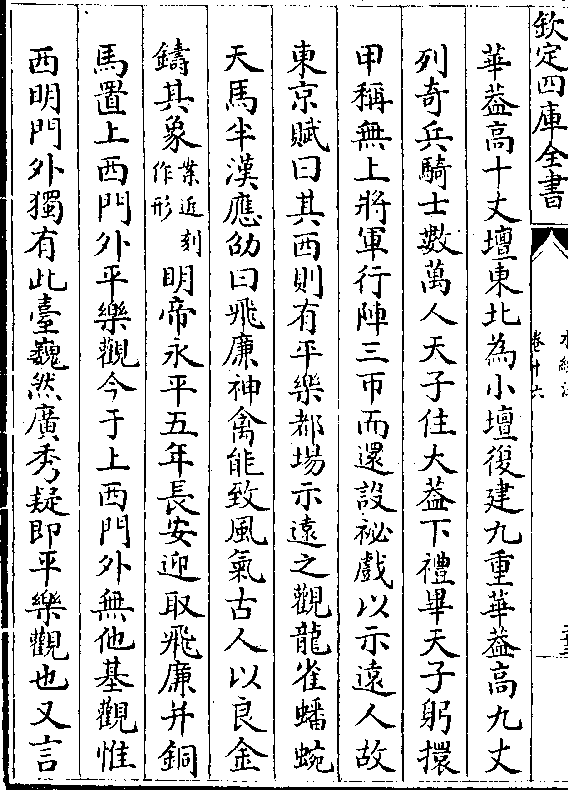 欽定四庫全書
卷十六
華葢高十丈壇東北為小壇復建九重華葢高九丈
列奇兵騎士數萬人天子住大葢下禮畢天子躬擐
甲稱無上將軍行陣三帀而還設祕戲以示遠人故
東京賦曰其西則有平樂都場示遠之觀龍雀蟠蜿
天馬半漢應劭曰飛廉神禽能致風氣古人以良金
鑄其象案近刻作形明帝永平五年長安迎取飛廉并銅
馬置上西門外平樂觀今于上西門外無他基觀惟
西明門外獨有此臺巍然廣秀疑即平樂觀也又言